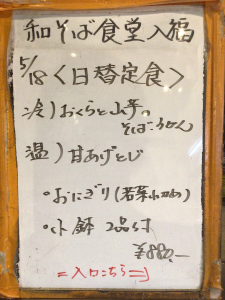 和そば食堂入福
5/18〈日替定食〉
冷）おくらと山芋の
そば·うどん
温）甘あげとじ
・おにぎり（若菜
・小鉢 2品付
¥880.-
=入口こちら=⇒